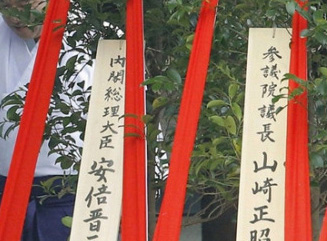 参議院議長 山崎正昭
内閣総理大臣 安倍晋